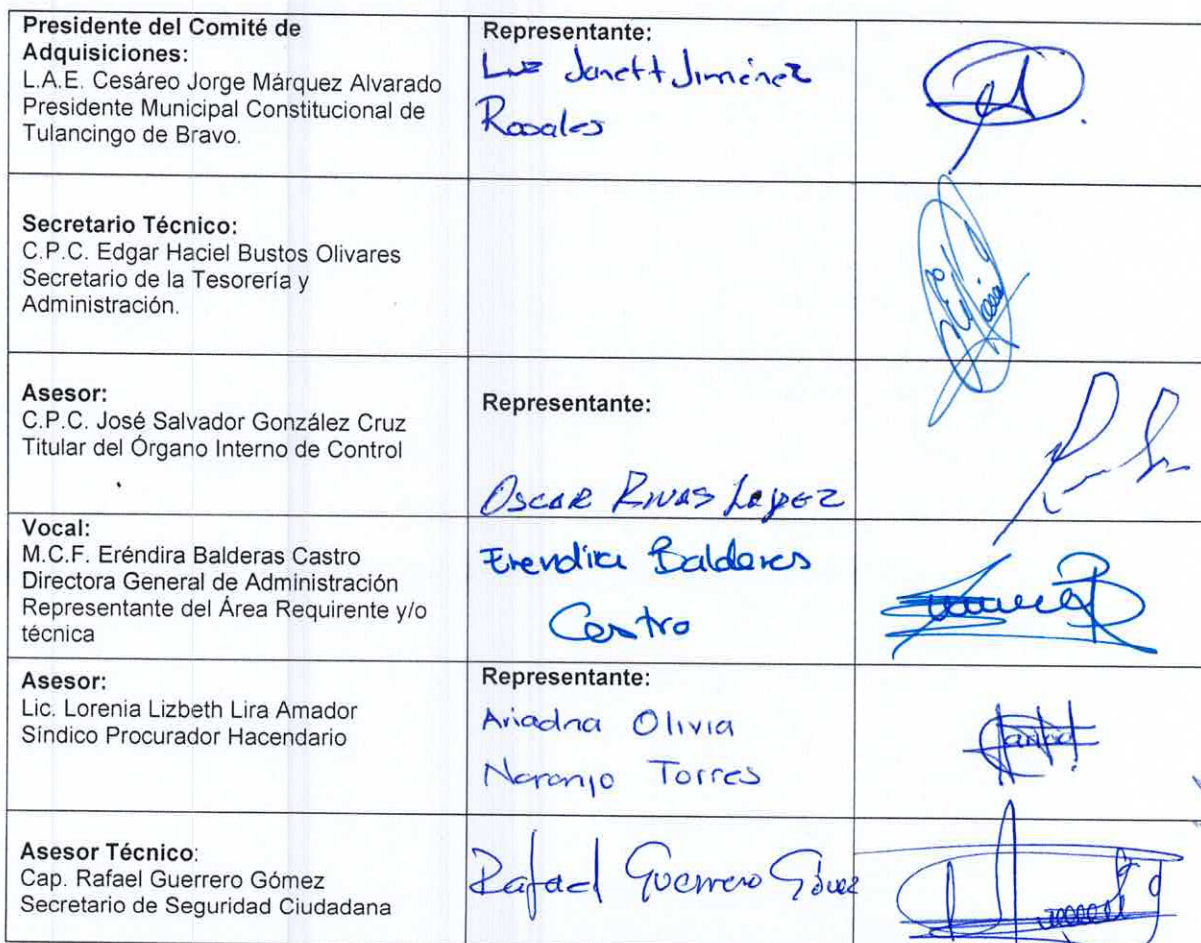 Presidente del Comité de
Adquisiciones:
L.A.E. Cesáreo Jorge Márquez Alvarado
Presidente Municipal Constitucional de
Tulancingo de Bravo.
Representante:
Luz Janett Jiménez
Rosales
Secretario Técnico:
C.P.C. Edgar Haciel Bustos Olivares
Secretario de la Tesorería y
Administración.
Asesor:
C.P.C. José Salvador González Cruz
Titular del Órgano Interno de Control
Representante:
OSCAR RIVAS LOPEZ
Vocal:
M.C.F. Eréndira Balderas Castro
Directora General de Administración
Representante del Área Requirente y/o
técnica
Erendira Balderas
Castro
Asesor:
Lic. Lorenia Lizbeth Lira Amador
Síndico Procurador Hacendario
Representante:
Ariadna Olivia
Naranjo Torres
Asesor Técnico:
Cap. Rafael Guerrero Gómez
Secretario de Seguridad Ciudadana
Rafael Guerrero Gómez